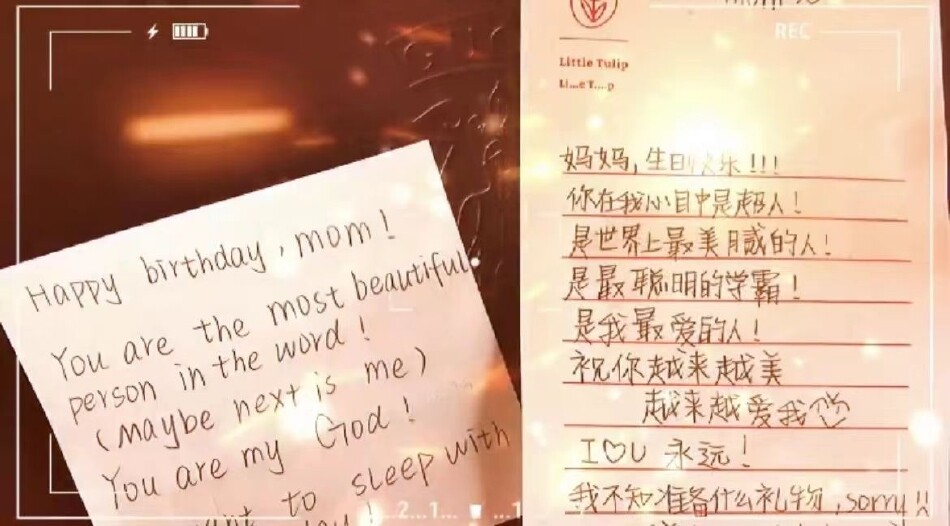 REC
Happy birthday, mom!
You are the most beautiful
person in the word!
(maybe next is me)
You are my God!
to sleep with
Little Tulip
妈妈,生日快乐!!!
你在我心目中是超人!
是世界上最美的人!
是最聪明的学霸!
是我最爱的人!
祝你越来越美
越来越爱我
I♡U 永远!
我不知准备什么礼物,sorry!!